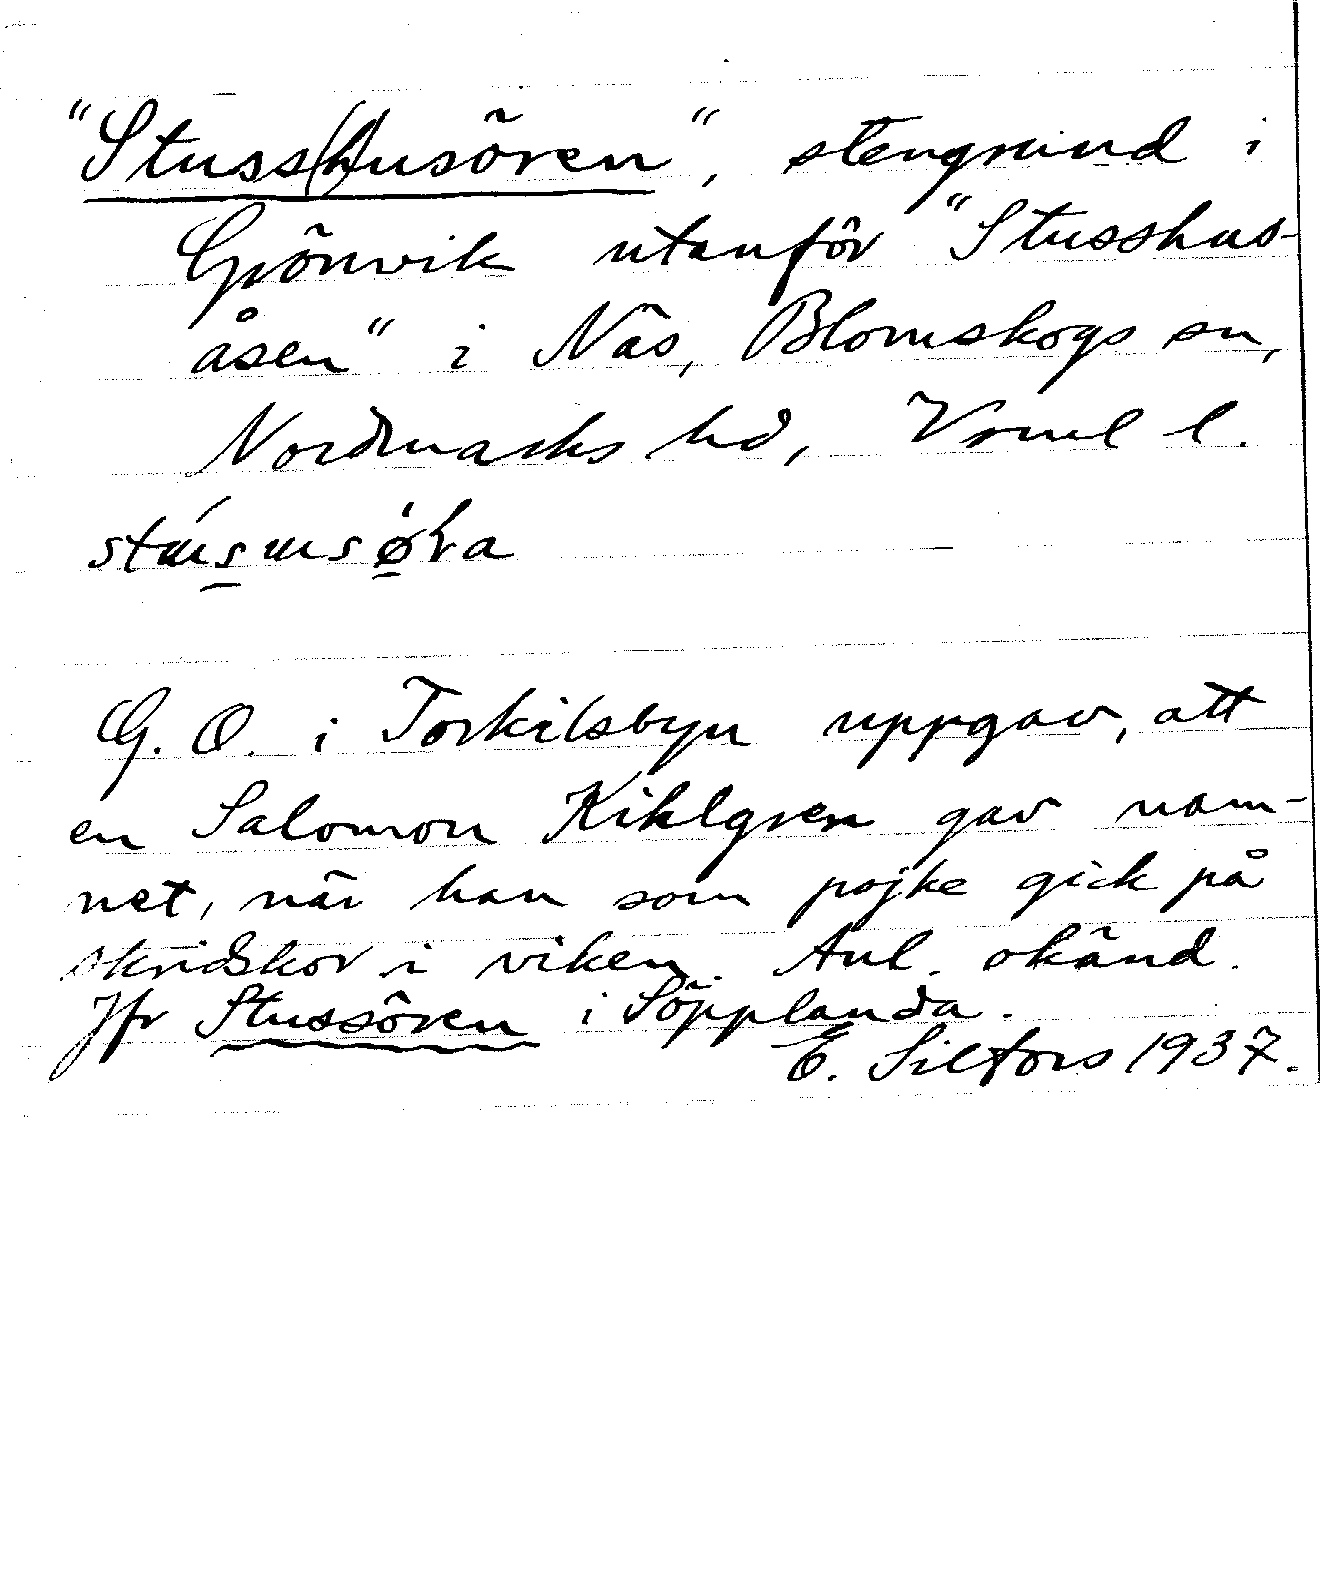 "Stuss(h)usören", stengrund i
Grönvik utanför "Stusshus-
åsen" i Näs, Blomskogs sn,
Nordmarks hd, Vrml l.
G. O. i Torkilsbyn uppgav, att
en Salomon Kihlgren gav nam-
net, när han som pojke gick på
skridskor i viken. Anl. okänd.
Jfr Stussören i Söpplanda.
E. Silfors 1937.